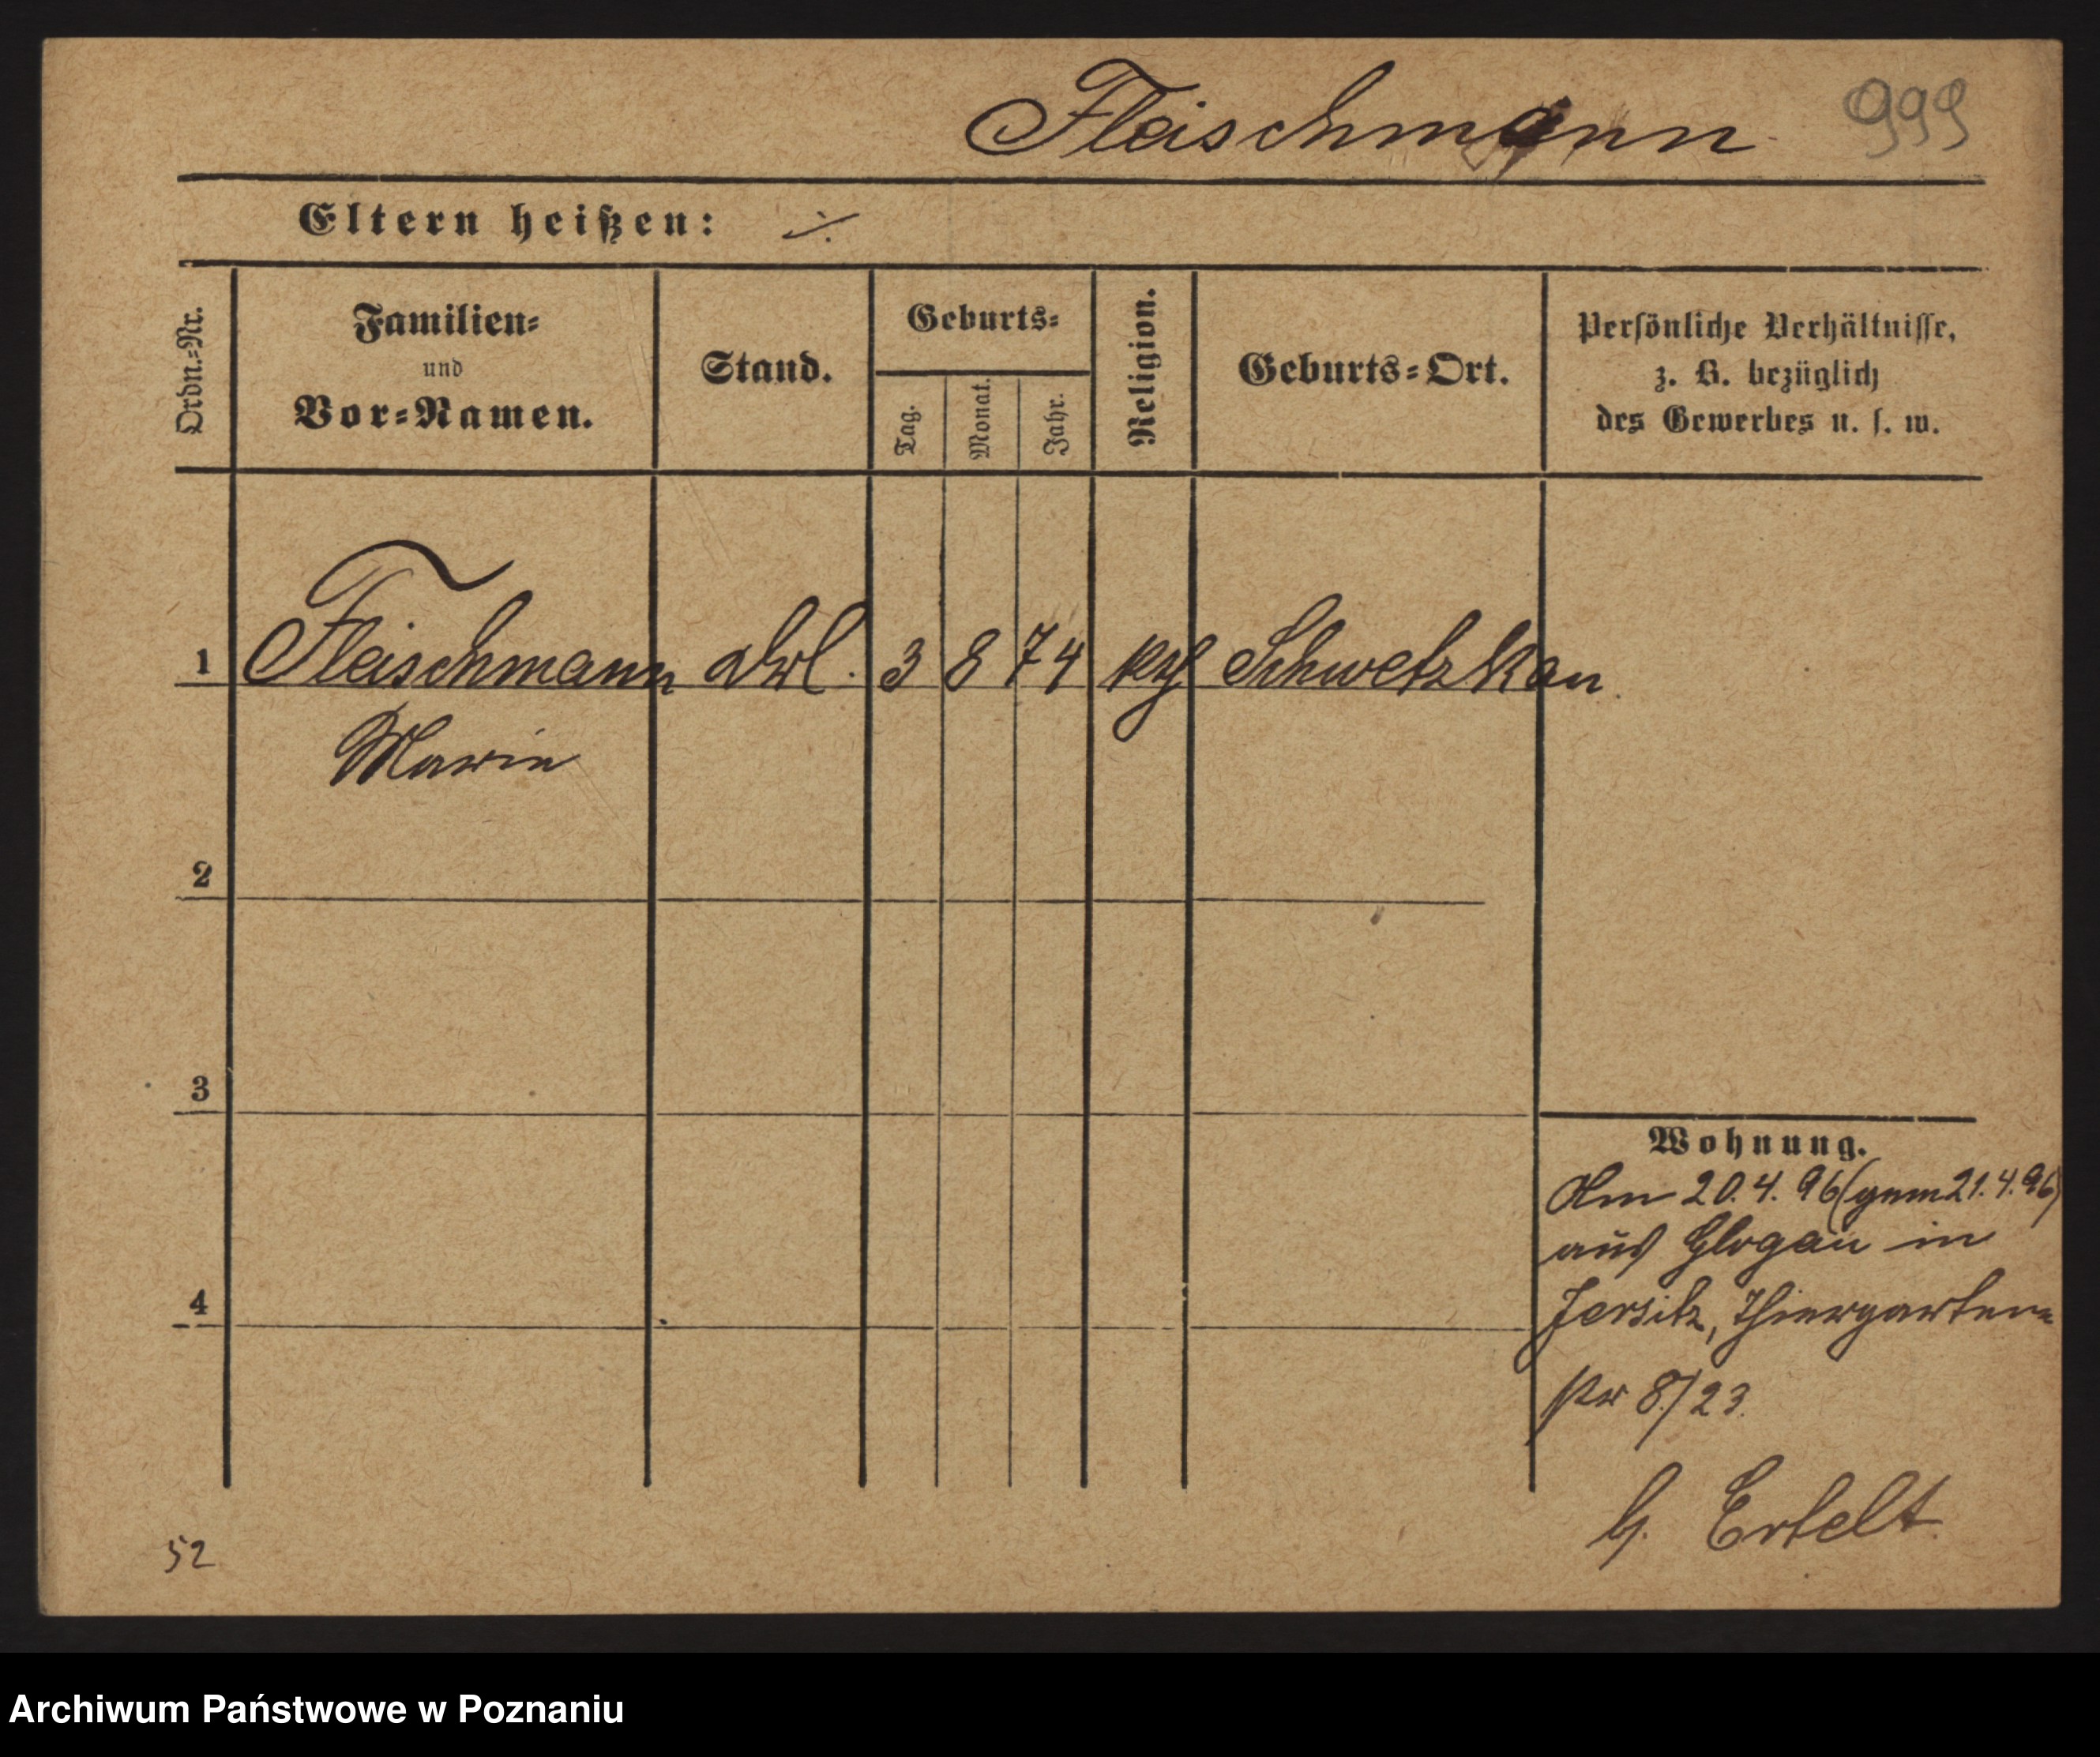 Fleischmann 999
Eltern heißen: ⁒
Ordn.=Nr.
Familien=
und
Vor=Namen.
Stand.
Geburts=
Tag.
Monat.
Jahr.
Religion.
Geburts=Ort.
Persönliche Verhältnisse,
z. B. bezüglich
des Gewerbes u. s. w.
1 Fleischmann 3 8 74 Schwetzkau
Marie
2
3
Wohnung.
Am 20.4.96 (gem 21.4.96)
aus Glogau in
4
Jersitz, Thiergarten=
str 8./23.
b. Ertelt.
52
Archiwum Państwowe w Poznaniu